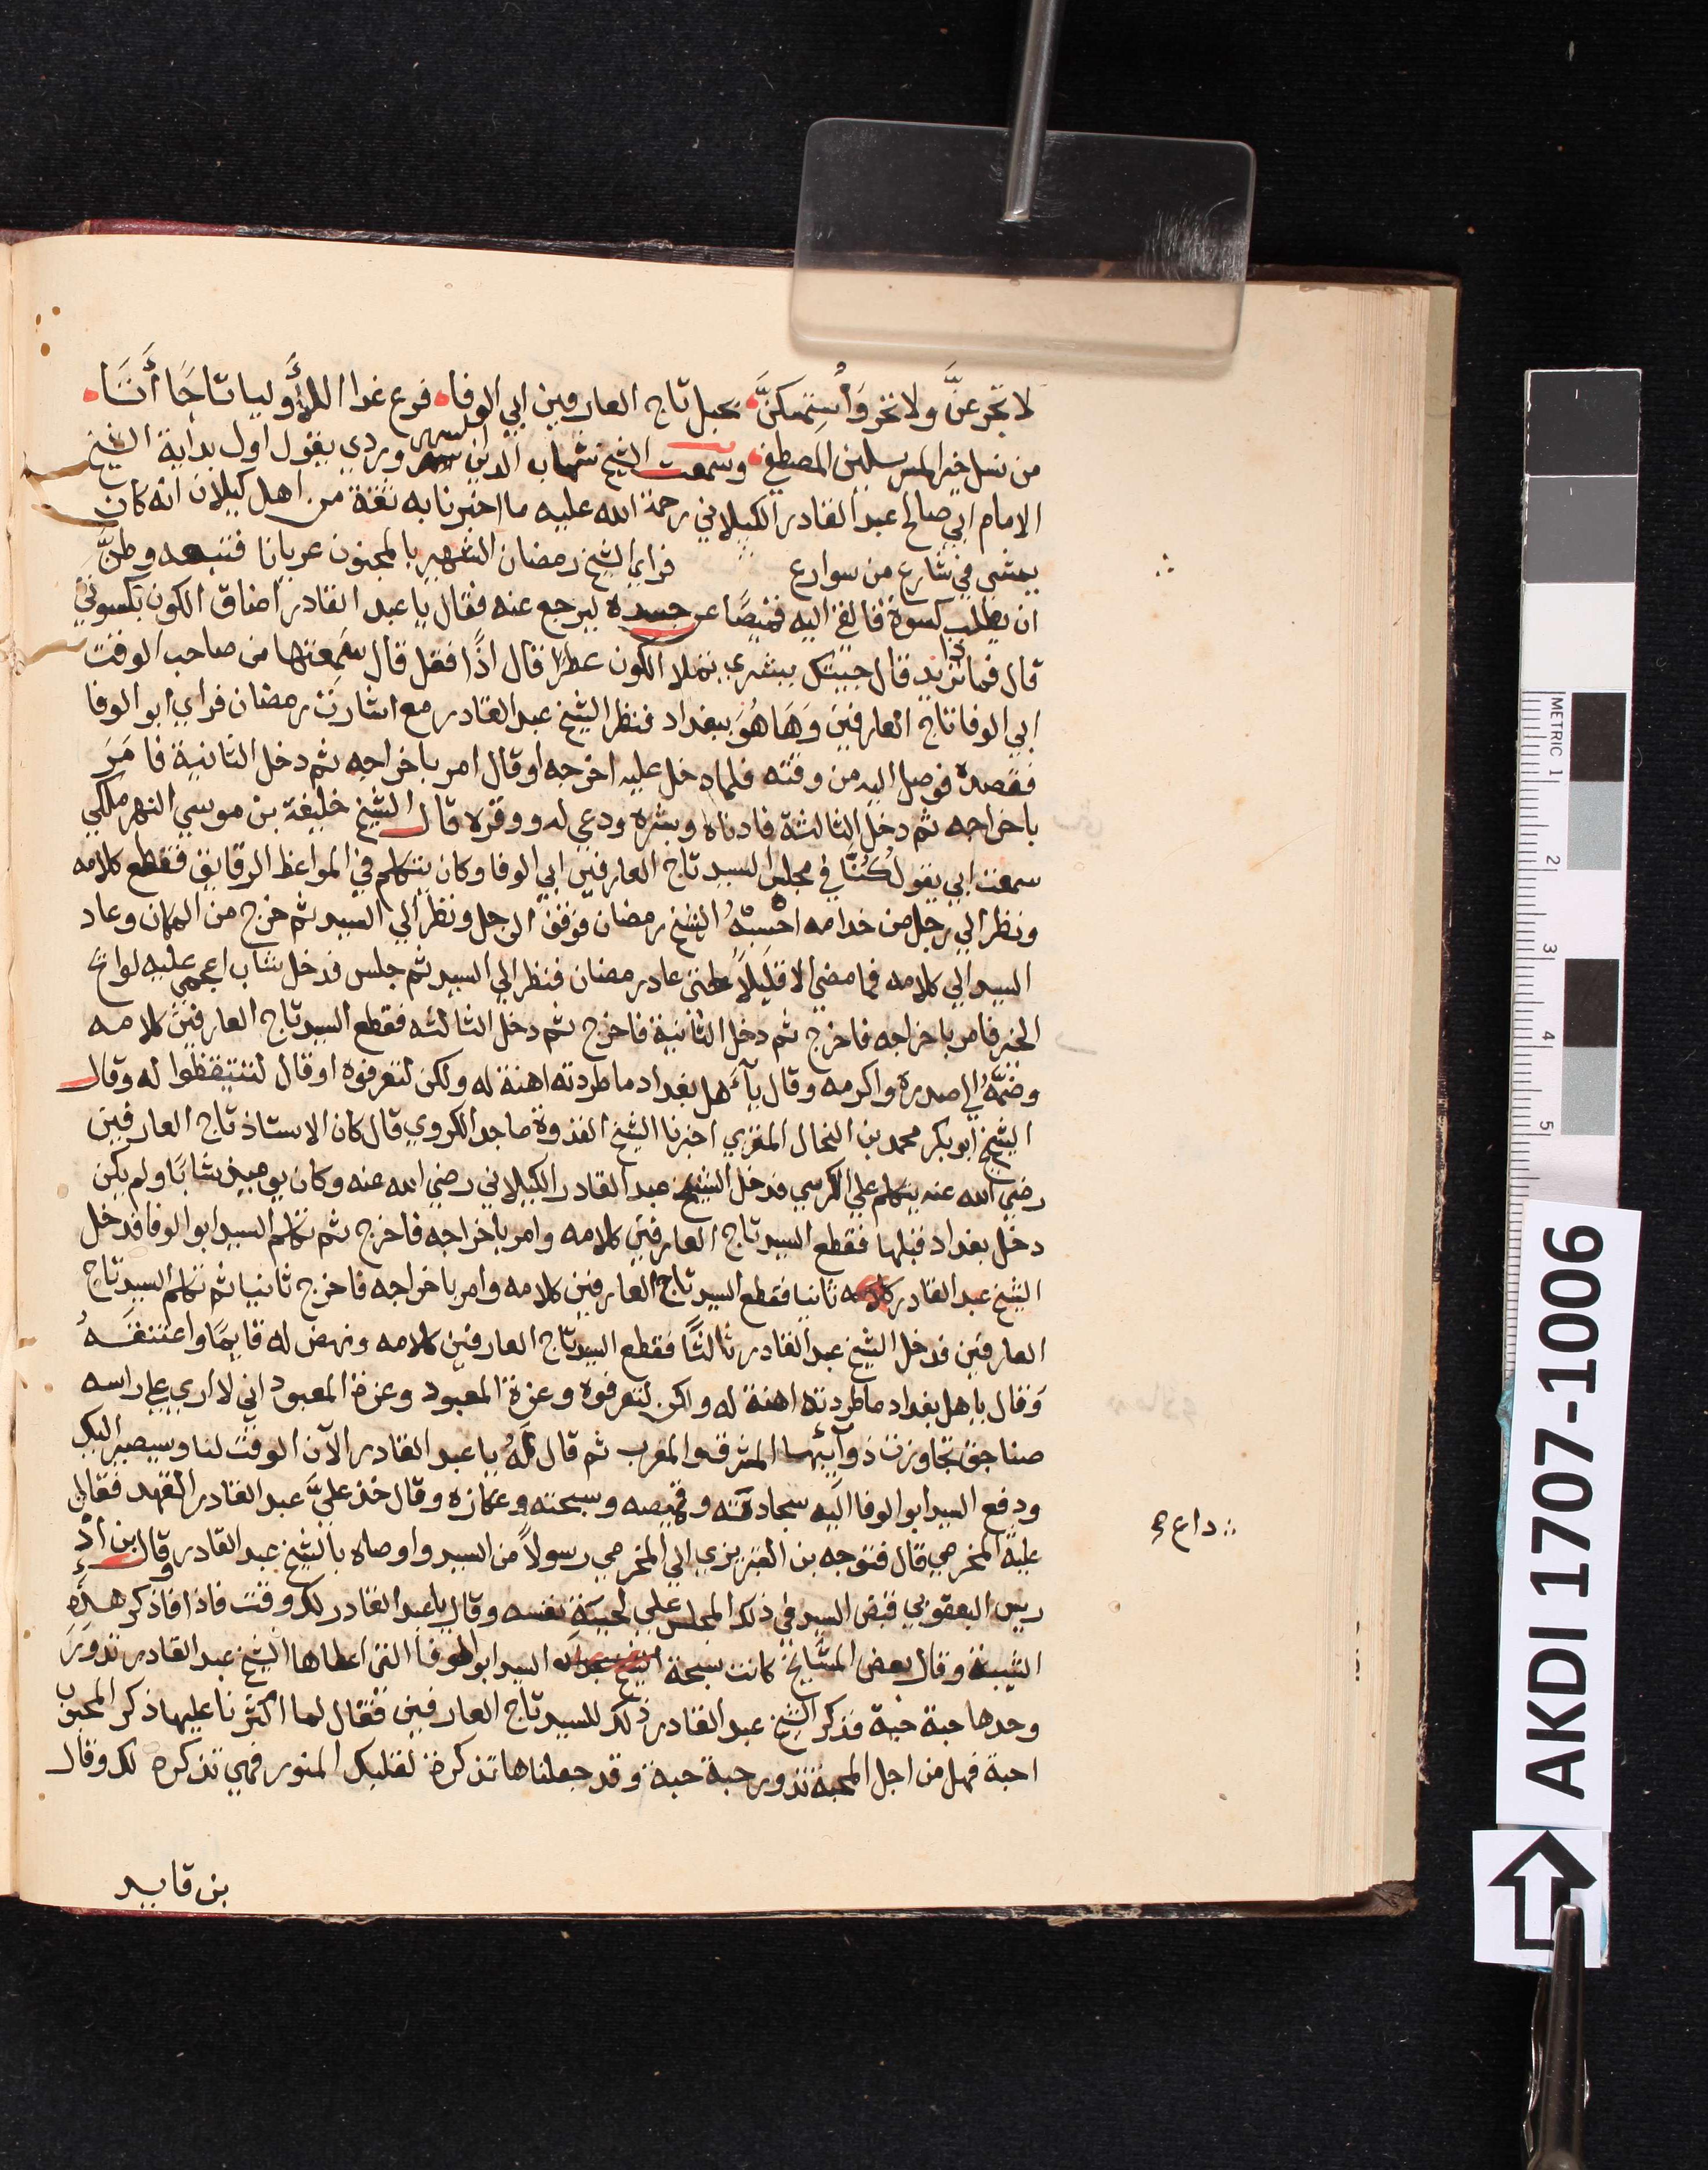 لا تجزعنَّ ولا تخر وَأستمسكنَّ بحبل تاج العارفين ابي الوفا فرع غدا للأَوليا تاجَا أَنَسَا
من نسل خير المرسلين المصطفي وسمعت الشيخ شهاب الدين السهروردي يقول اول بداية الشيخ
الامام ابي صالح عبد القادر الكيلاني رحمة الله عليه ما اخبرنا به ثقة من اهل كيلان انه كان
يمشي في شارع من سوارع فراي الشيخ رمضان الشهير بالمجنون عريانا فتبعه وظنَّ
ان يطلب كسوة فالقي اليه قميصًا عن جسده ليرجع عنه فقال يا عبد القادر اضاق الكون بكسوتي
قال فماذا تريد قال جيتك ببشري تملا الكون عطرًا قال اذًا فقل قال سَمِعتها من صاحب الوقت
ابي الوفا تاج العارفين وَهَا هُوَ ببغداد فنظر الشيخ عبد القادر مع اشارت رمضان فراي ابو الوفا
فقصده فوصل اليه من وقته فلما دخل عليه اخرجه او قال امر باخراجه ثم دخل الثانية فامَرَ
باخراجه ثم دخل الثالثة فادناه وبشره ودعي له ووقره قال الشيخ خليفة بن موسي النهر ملكي
سمعت ابي يقول كُنَّا في مجلس السيد تاج العارفين ابي الوفا وكان يتكلم في المواعظ الرقايق فقطع كلامه
ونظر الي رجل من خدامه احسبهُ الشيخ رمضان فوقف الرجل ونظر الي السيد ثم خرج من المكان وعاد
السيد الي كلامه فما مضي الا قليلاً حتى عاد رمضان فنظر الي السيد ثم جلس فدخل شاب اعجمي عليه لوايح
الخير فامر باخراجه فاخرج ثم دخل الثانية فاخرج ثم دخل الثالثه فقطع السيد تاج العارفين كلامه
وضمَّهُ الي صدره واكرمه وقال يآءَهل بغداد ما طردته اهنة له ولكن لتعرفوه او قال لتتيقظوا له وقال
الشيخ ابو بكر محمد بن النخال المقري اخبرنا الشيخ القدوة ماجد الكروي قال كان الاستاذ تاج العارفين
رضي الله عنه يتكلم علي الكرسي فدخل الشيخ عبد القادر الكيلاني رضي الله عنه وكان يوميذ شابًا ولم يكن
دخل بغداد قبلها فقطع السيد تاج العارفين كلامه وامر باخراجه فاخرج ثم تكلم السيد ابو الوفا فدخل
الشيخ عبد القادر كلامه ثانيا فقطع السيد تاج العارفين كلامه وامر باخراجه فاخرج ثانيا ثم تكلم السيد تاج
العارفين فدخل الشيخ عبد القادر ثالثًا فقطع السيد تاج العارفين كلامه ونهض له قايمًا واعتنقَهُ
وَقال ياهل بغداد ما طردته اهنة له ولكن لتعرفوه وعزة المعبود وعزة المعبود اني لا اري علي راسه
صناجق تجاوزت ذوآيبها المشرق والمغرب ثم قال لَهُ يا عبد القادر الآن الوقت لنا وسيصير اليك
ودفع السيد ابو الوفا اليه سجادته وقميصه وسبحته وعكازه وقال خذ عليَّ عبد القادر العهد فقال لي
عليه المخرمي قال فتوجه بن العزيزي الي المخرمي رسولاً من السيد واوصاه بالشيخ عبد القادر وقال بن اد
ريس اليعقوبي قبض السيد في ذلك المجلس علي لحيَتِه نفسه وقال يا عبد القادر لك وقت فاذا فاذكر هذه
الشيبة وقال بعض المشايخ كانت سبحة السيد ابو الوفا التي اعطاها الشيخ عبد القادر تدور
وحدها حبة حبة فذكر الشيخ عبد القادر ذلك للسيد تاج العارفين فقال لما اكثرنا عليها ذكر المحبوب
احبة فهل من اجل المحبة تدور حبة حبة وقد جعلناها تذكرة لقلبك المنور فهي تذكره لك وقال
بن قايد
AKDI 1707-1006
METRIC 1 2 3 4 5